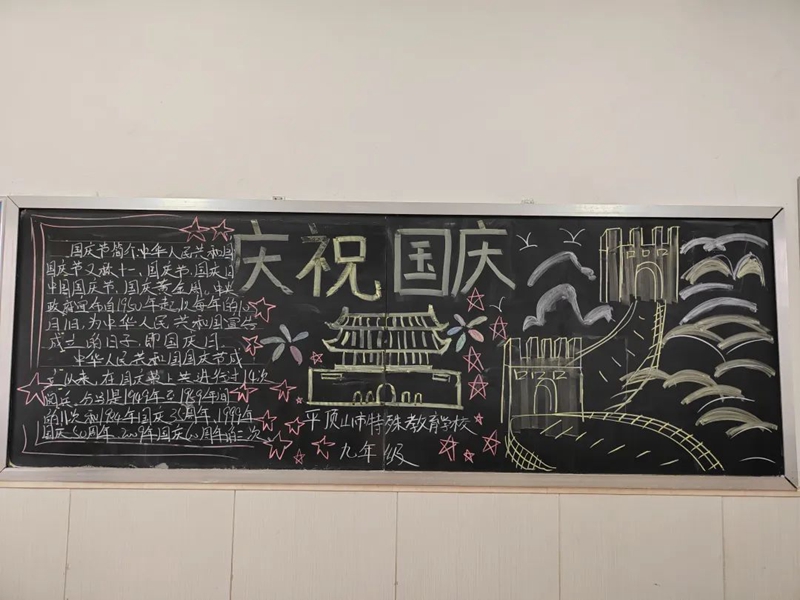 庆祝国庆
国庆节简介中华人民共和国
国庆节又称十一、国庆节、国庆日
中国国庆节、国庆黄金周。中央
政府宣布自1950年起，以每年的10
月1日，为中华人民共和国宣告
成立的日子，即国庆日。
中华人民共和国国庆节成
立以来，在国庆典上共进行过14次
阅兵，分别是1949年至1959年间
的11次和1984年国庆35周年，1999年
国庆50周年、2009年国庆60周年的三次
平顶山市特殊教育学校
九年级